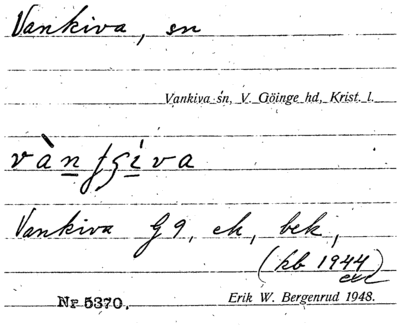 Vankiva, sn
Vankiva sn, V. Göinge hd, Krist. l.
Vankiva G 9, ek, bek,
(kb 1944)
Nr 5370.
Erik W. Bergenrud 1948.